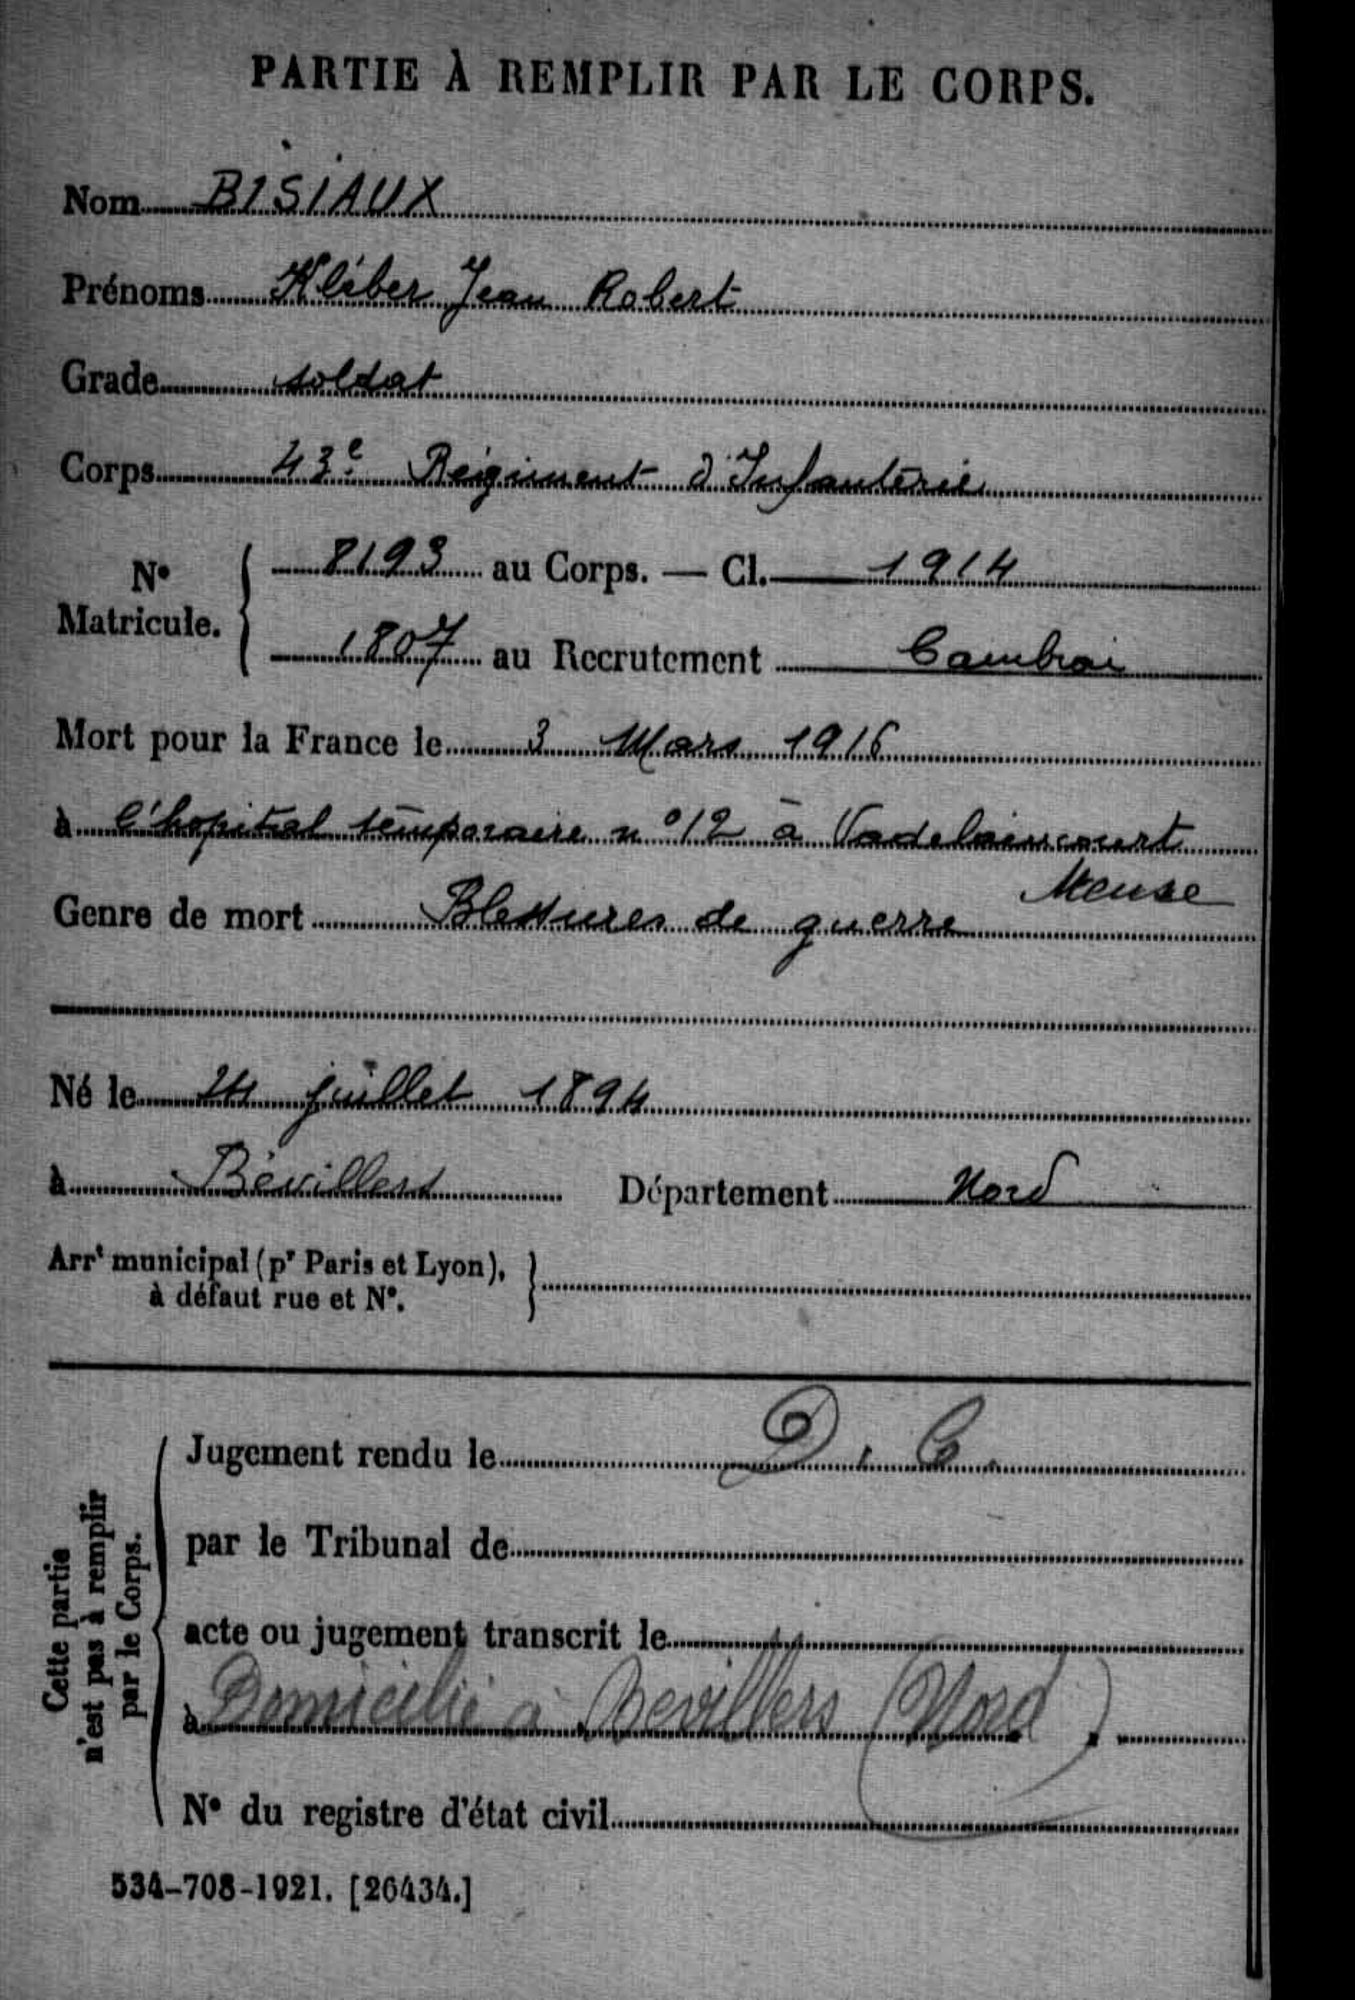 PARTIE À REMPLIR PAR LE CORPS.
Nom BISIAUX
Prénoms Kléber Jean Robert
Grade soldat
Corps 43e Régiment d'Infanterie
N° Matricule. { 8193 au Corps. — Cl. 1914
1807 au Recrutement Cambrai
Mort pour la France le 3 Mars 1916
à l'hopital temporaire n° 12 à Vadelaincourt
Meuse
Genre de mort Blessures de guerre
Né le 24 juillet 1894
à Bévillers Département Nord
Arrt municipal (pr Paris et Lyon), }
à défaut rue et N°.
Cette partie
n'est pas à remplir
par le Corps.
Jugement rendu le D. C.
par le Tribunal de
acte ou jugement transcrit le
à Domicilié à Bevillers (Nord).
N° du registre d'état civil
534-708-1921. [26434.]